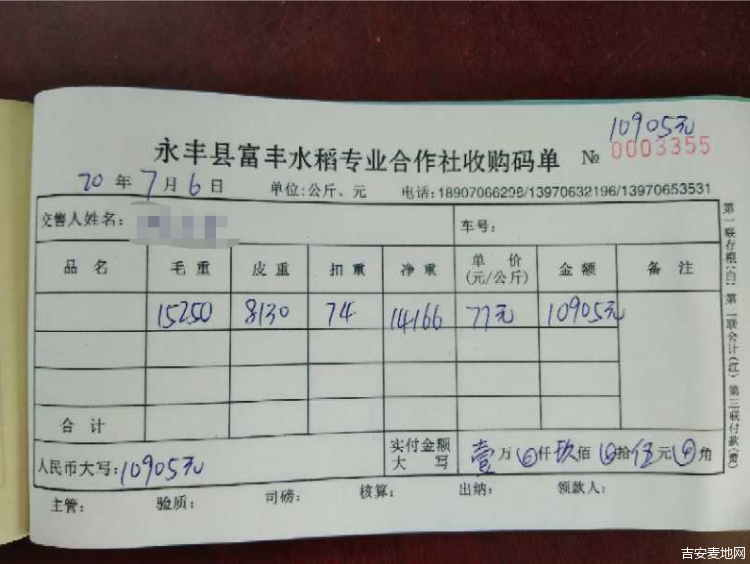 10905元
永丰县富丰水稻专业合作社收购码单 № 0003355
20 年 7 月 6 日 单位:公斤、元 电话:18907066298/13970632196/13970653531
交售人姓名: 车号:
品名 毛重 皮重 扣重 净重 单价(元/公斤) 金额 备注
15250 8130 74 14166 77元 10905元
合计
人民币大写:10905元 实付金额大写 壹万0仟玖佰0拾伍元0角
主管: 验质: 司磅: 核算: 出纳: 领款人:
第一联存根(白) 第二联会计(红) 第三联付款(黄)
吉安麦地网